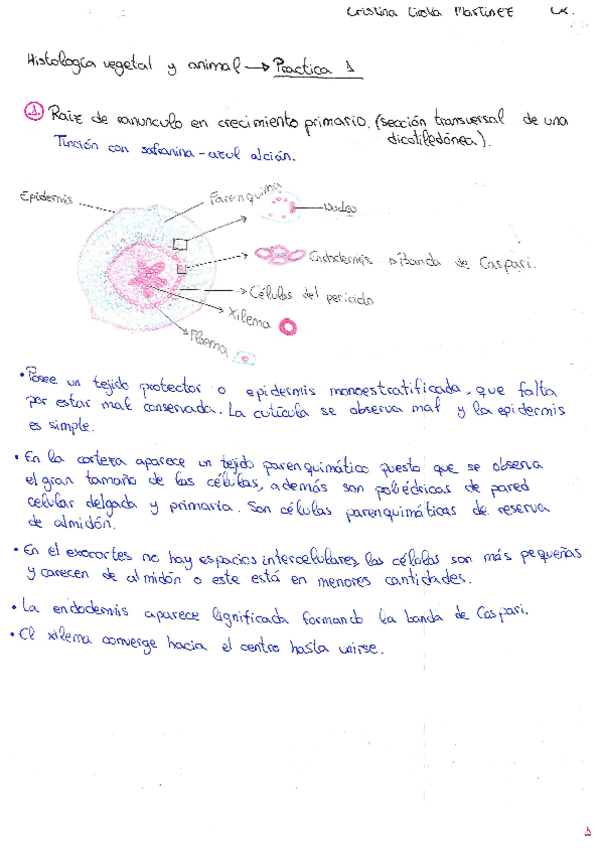 Cristina Lirola Martínez
Histología vegetal y animal → Practica 1
1. Raiz de ranunculo en crecimiento primario. (sección transversal de una
dicotiledónea).
Tinción con safranina - azul alcián.
Epidermis
Parenquima
Nucleo
Endodermis → Banda de Caspari.
Células del periciclo
Xilema
Floema
• Posee un tejido protector o epidermis monoestratificada, que falta
por estar mal conservada. La cutícula se observa mal y la epidermis
es simple.
• En la corteza aparece un tejido parenquimático puesto que se observa
el gran tamaño de las células, además son poliédricas de pared
celular delgada y primaria. Son células parenquimáticas de reserva
de almidón.
• En el exocortes no hay espacios intercelulares, las células son más pequeñas
y carecen de almidón o este está en menores cantidades.
• La endodermis aparece lignificada formando la banda de Caspari.
• El xilema converge hacia el centro hasta unirse.
1